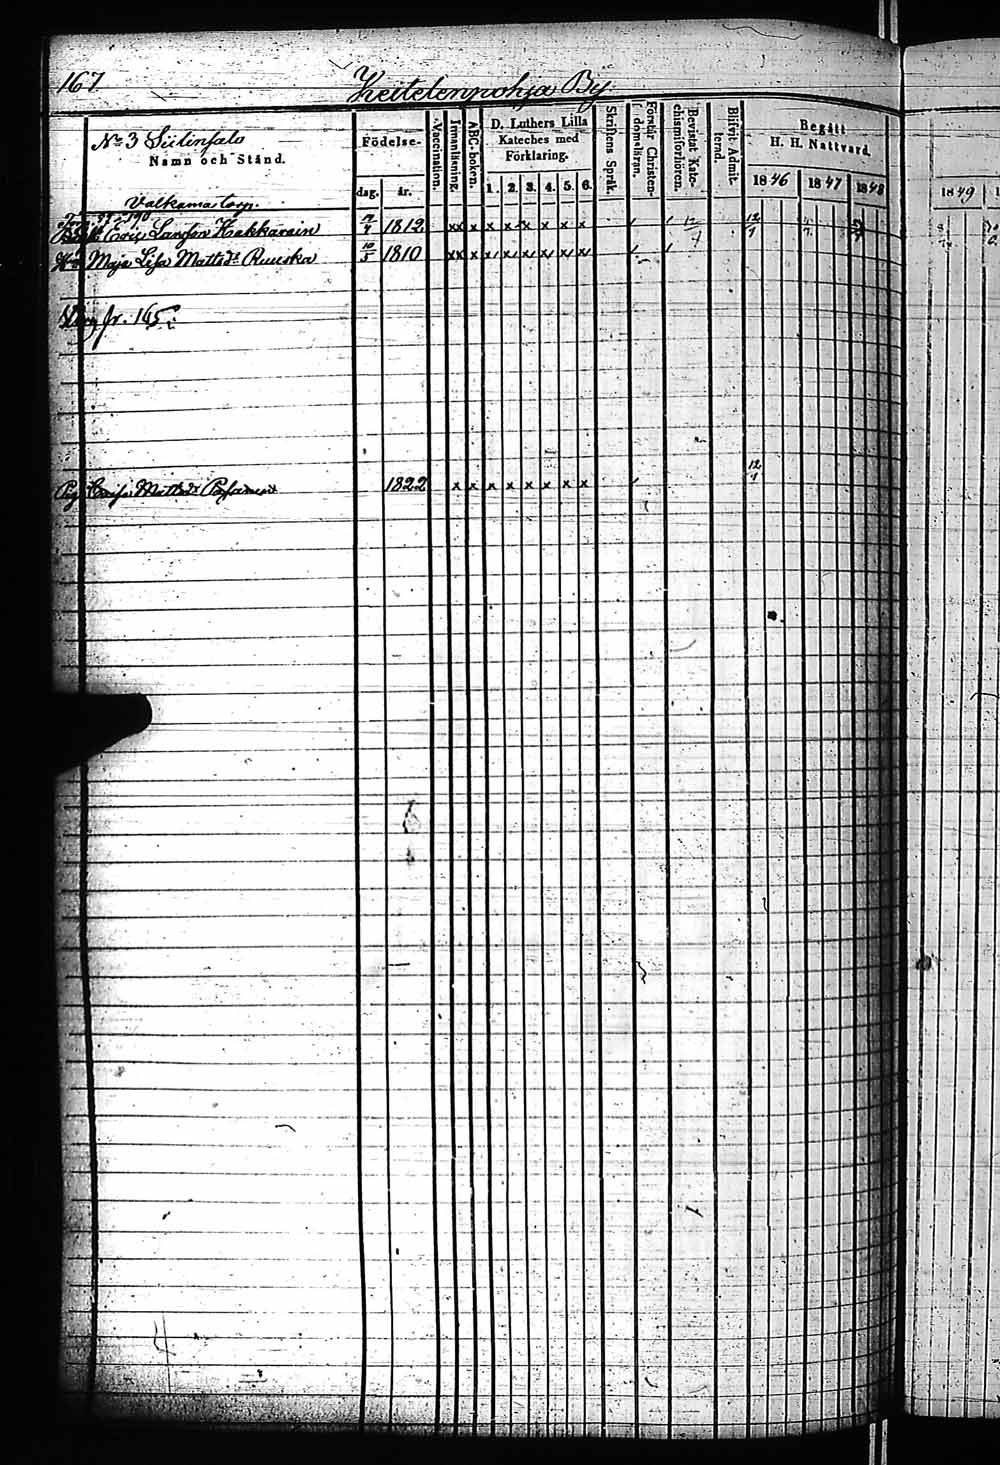 167 Keitelenpohja By
No 3 Siilinsalo
Namn och Stånd.
Födelse-
dag. år.
Vaccination.
Innanläsning.
ABC-boken.
D. Luthers Lilla
Kateches med
Förklaring.
1. 2. 3. 4. 5. 6.
Skriftens Språk.
Förstår Christen-
domsläran.
Bevistat Kate-
chismiförhören.
Blifvit Admit-
terad.
Begått
H. H. Nattvard.
1846 1847 1848 1849
Valkama Torp.
Eric Larsson Hakkarain 1812 x x x x x x x x x
Maja Lisa Mattsdr Ruuska 10/5 1810 x x x x x x x x x
fr. 165
Pig Mattsdr 1822 x x x x x x x x 12